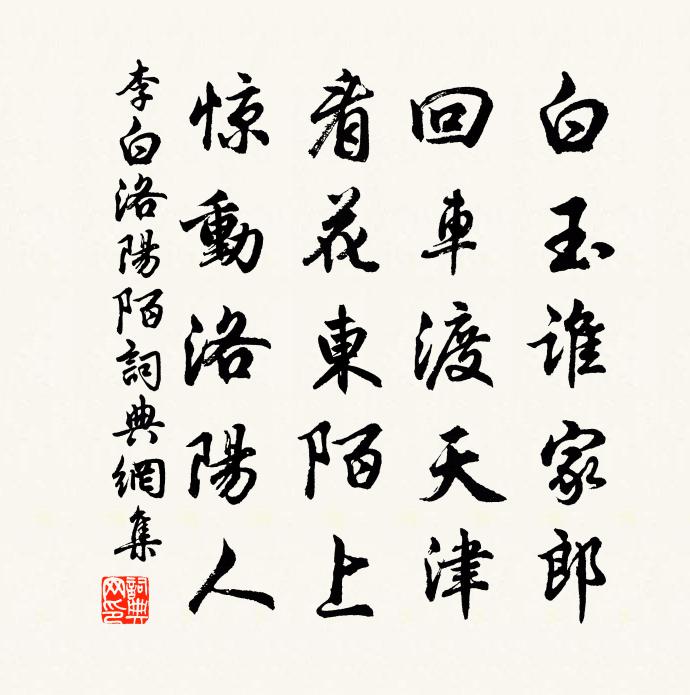 白玉谁家郎
回車渡天津
看花東陌上
惊動洛陽人
李白洛陽陌詞典網集
詞典網印